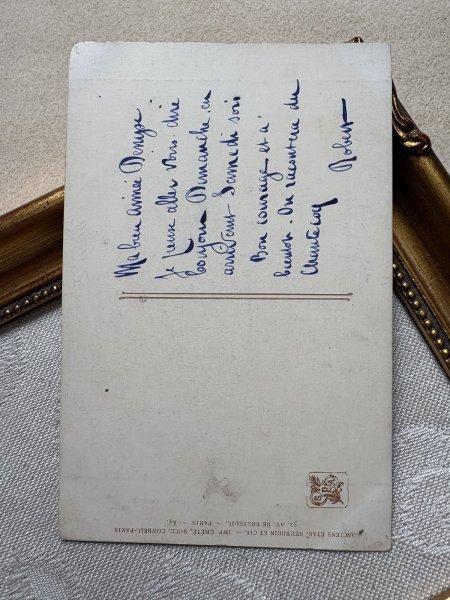 Ma bien aimée Denyse
Je pense aller vous dire
bonjour Dimanche en
arrivant Samedi soir
Bon courage et à
bientôt. On racontera du
Chantecoq
Robert
ANCIENS ÉTAB. NEURDEIN ET CIE. — IMP. CRÉTÉ, SUCC. CORBEIL-PARIS
52, AV. DE BRETEUIL - PARIS -